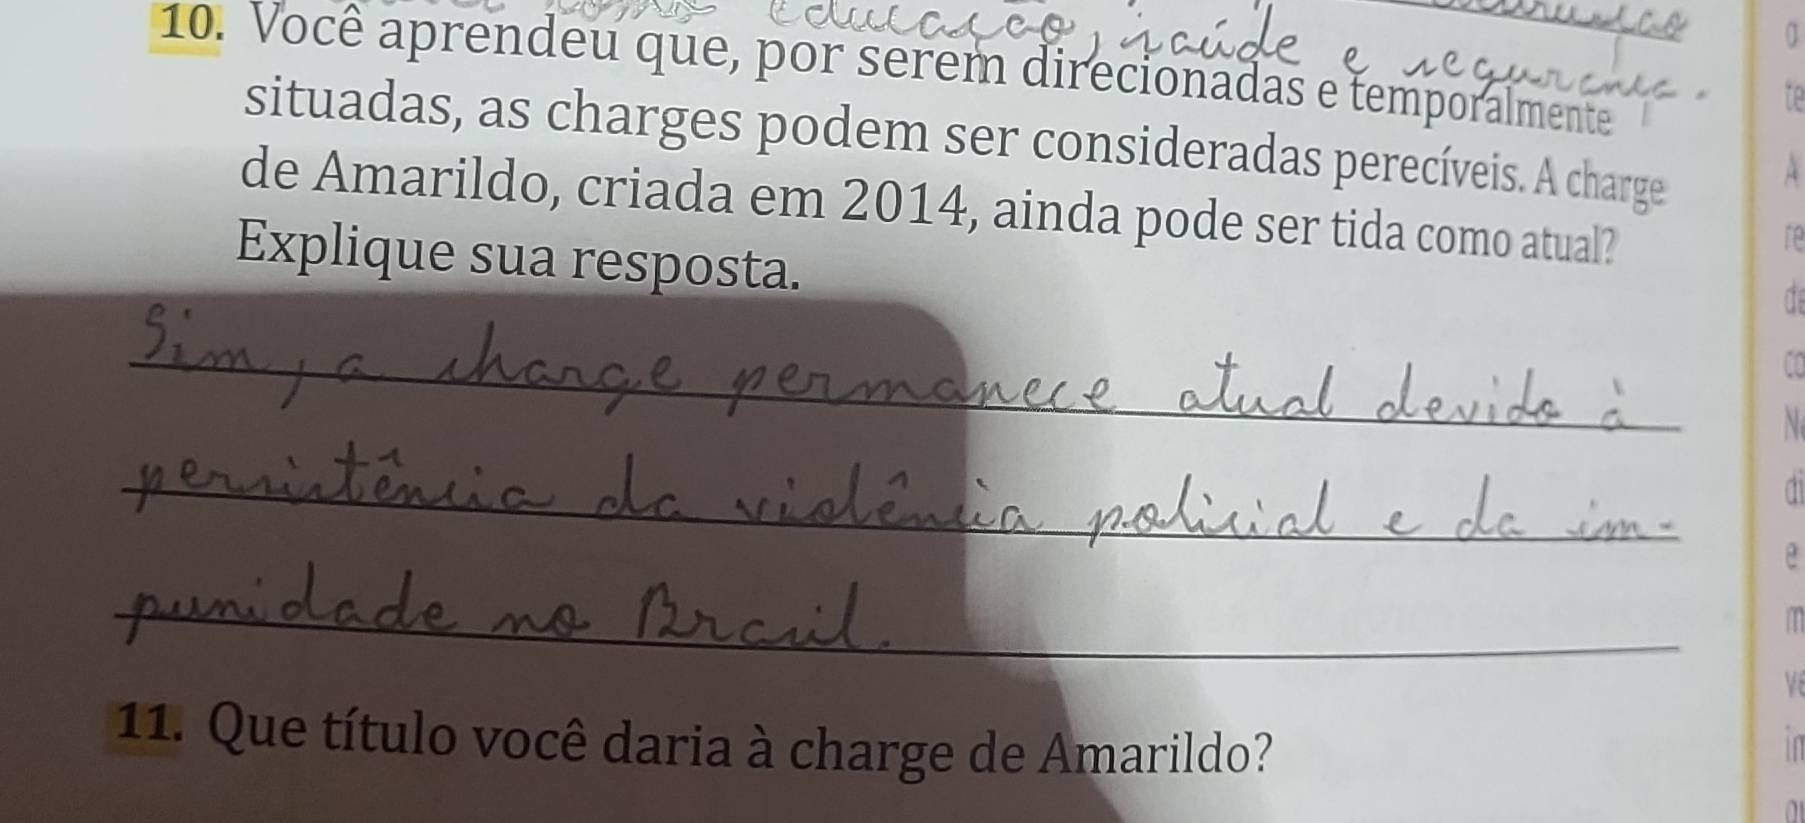 educação, saúde e segurança.
10. Você aprendeu que, por serem direcionadas e temporalmente
situadas, as charges podem ser consideradas perecíveis. A charge
de Amarildo, criada em 2014, ainda pode ser tida como atual?
Explique sua resposta.
Sim, a charge permanece atual devido à
persistência da violência policial e da im-
punidade no Brasil.
11. Que título você daria à charge de Amarildo?